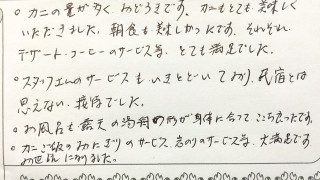 ○ カニの量が多く、おどろきです。カニもとても美味しく
いただきました。朝食も美味しかったです。それぞれ
デザート・コーヒーのサービス等、とても満足でした。
○ スタッフさんのサービスもいきとどいており、民宿とは
思えない接待でした。
○ お風呂も露天の湯 が身体に合ってここち良ったです。
○ カニご飯のおにぎりのサービス、岩のりのサービス等、大満足です。
お世話になりました。